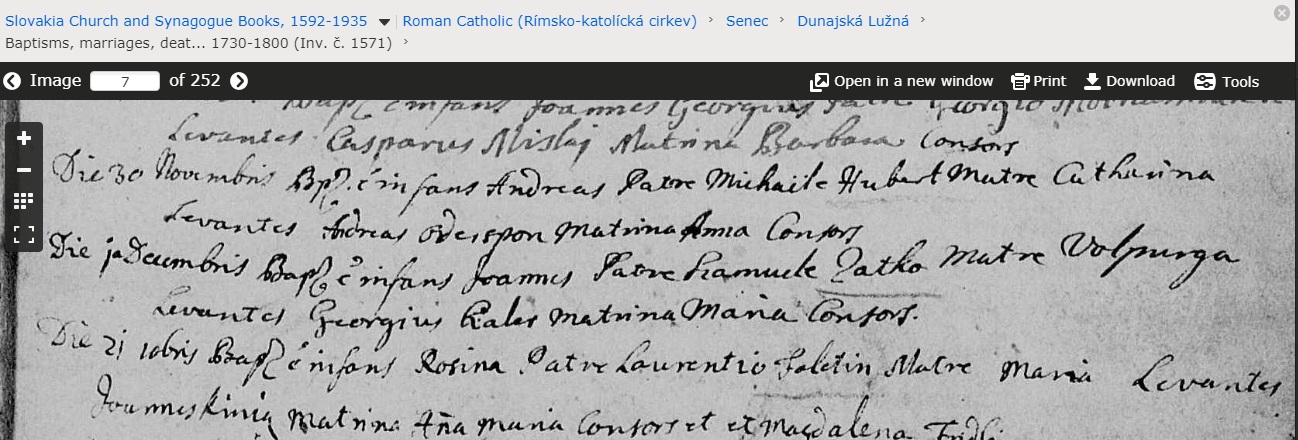 Slovakia Church and Synagogue Books, 1592-1935 Roman Catholic (Rímsko-katolícká cirkev) › Senec › Dunajská Lužná ›
Baptisms, marriages, deat... 1730-1800 (Inv. č. 1571) ›
Image 7 of 252 Open in a new window Print Download Tools
infans Joannes Georgius Patre Georgio
Levantes Casparus Mislaj Matrina Barbara Consors
Die 30 Novembris Bpt. e infans Andreas Patre Michaile Hubert Matre Catharina
Levantes Matrina Anna Consors
Die Decembris Bapt. e infans Joannes Patre Zatko Matre Volpurga
Levantes Georgius Matrina Maria Consors.
Die 21 10bris Bapt. e infans Rosina Patre Laurentio Matre Maria Levantes
Joannes Matrina Aña Maria Consors et Magdalena